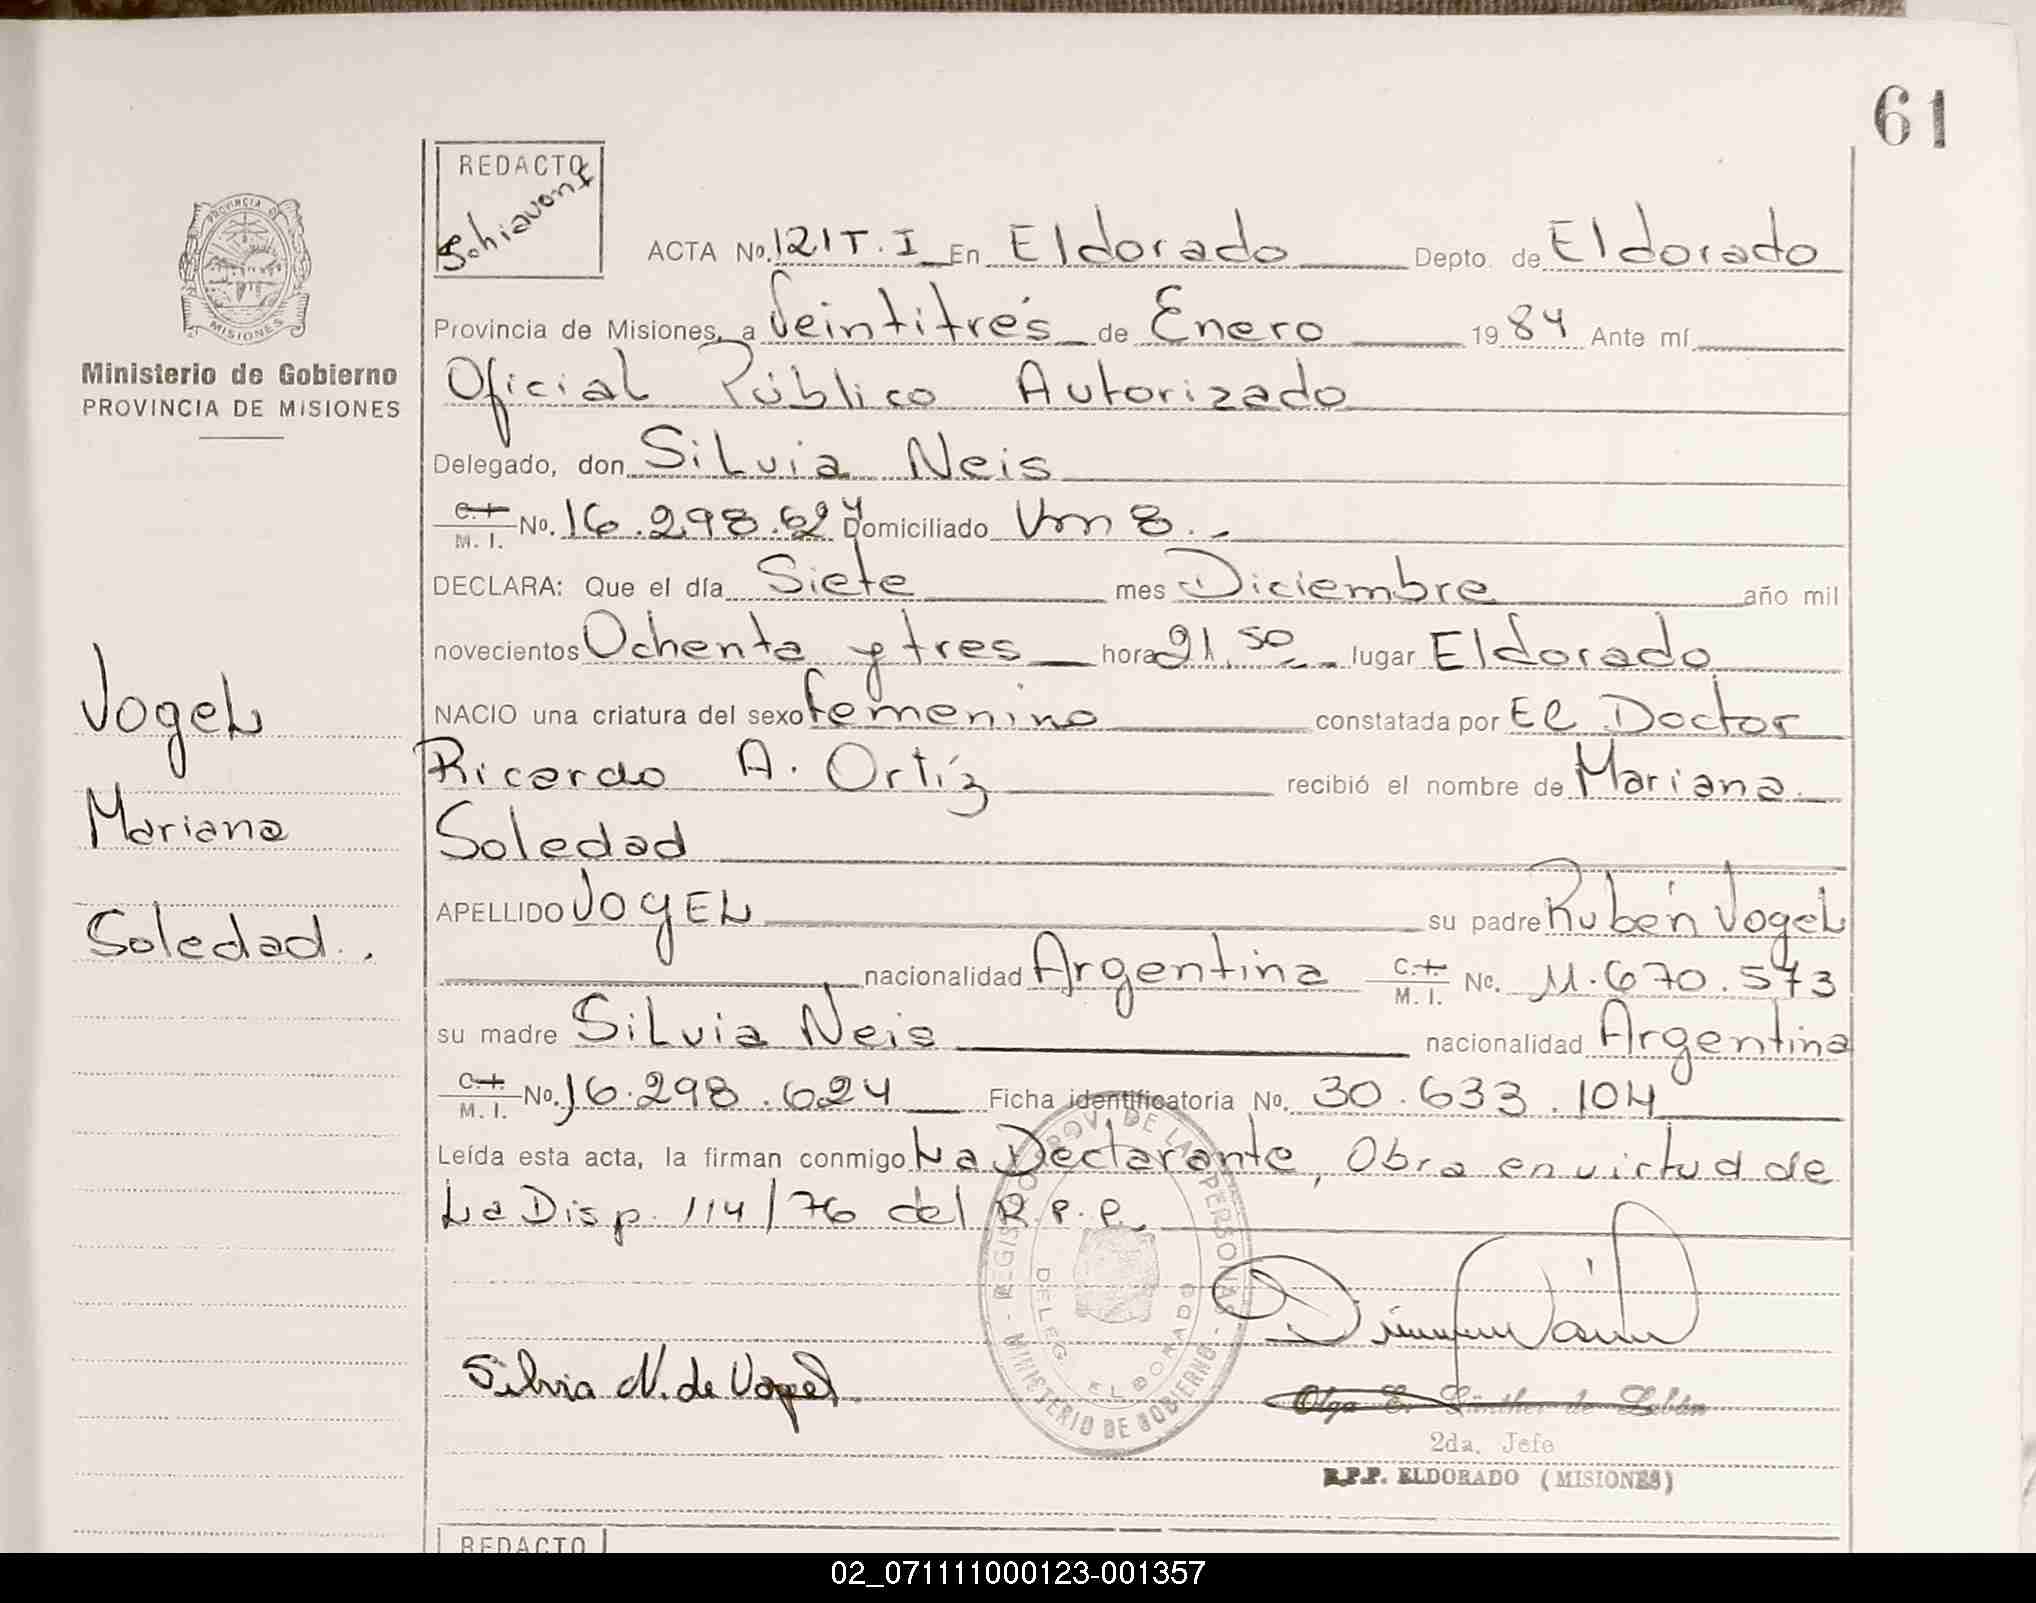 61
REDACTO
Schiavoni
PROVINCIA DE
MISIONES
Ministerio de Gobierno
PROVINCIA DE MISIONES
ACTA No. 121 T. I En Eldorado Depto. de Eldorado
Provincia de Misiones, a Veintitrés de Enero 1984 Ante mí
Oficial Público Autorizado
Delegado, don Silvia Neis
C.I. M. I. No. 16.298.624 Domiciliado Km 8.-
DECLARA: Que el día Siete mes Diciembre año mil
novecientos Ochenta y tres hora 21,50 lugar Eldorado
NACIO una criatura del sexo femenino constatada por El Doctor
Ricardo A. Ortíz recibió el nombre de Mariana
Soledad
APELLIDO VOGEL su padre Rubén Vogel
nacionalidad Argentina C.I. M. I. No. 11.670.573
su madre Silvia Neis nacionalidad Argentina
C.I. M. I. No. 16.298.624 Ficha identificatoria No. 30.633.104
Leída esta acta, la firman conmigo La Declarante, Obra en virtud de
La Disp. 114/76 del R.P.P.
Vogel
Mariana
Soledad.
REGISTRO PROV. DE LAS PERSONAS - MINISTERIO DE GOBIERNO -
DELEG. ELDORADO
Silvia N. de Vogel.
Olga E. Günther de
2da. Jefe
R.P.P. ELDORADO (MISIONES)
REDACTO
02_071111000123-001357